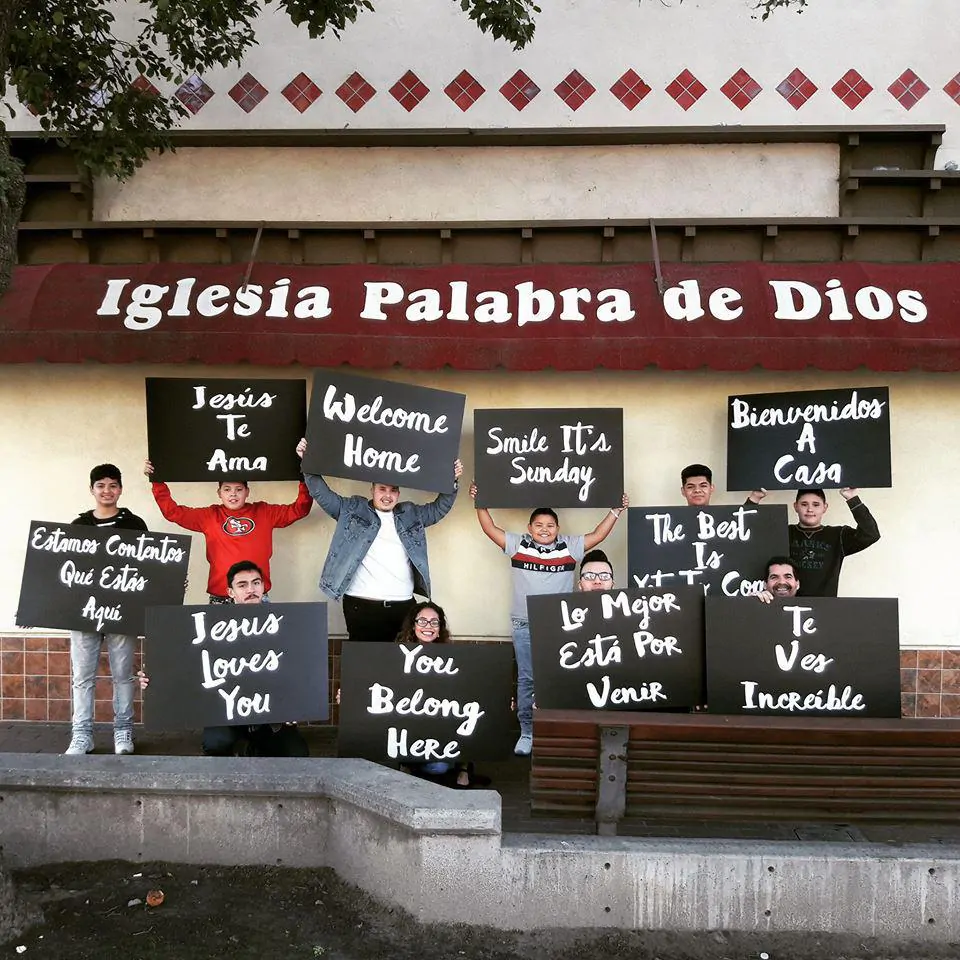 Iglesia Palabra de Dios
Jesús
Te
Ama
Welcome
Home
Smile It's
Sunday
Bienvenidos
A
Casa
Estamos Contentos
Qué Estás
Aquí
The Best
Is
Yet To Com
Jesus
Loves
You
You
Belong
Here
Lo Mejor
Está Por
Venir
Te
Ves
Increíble
HILFIGER